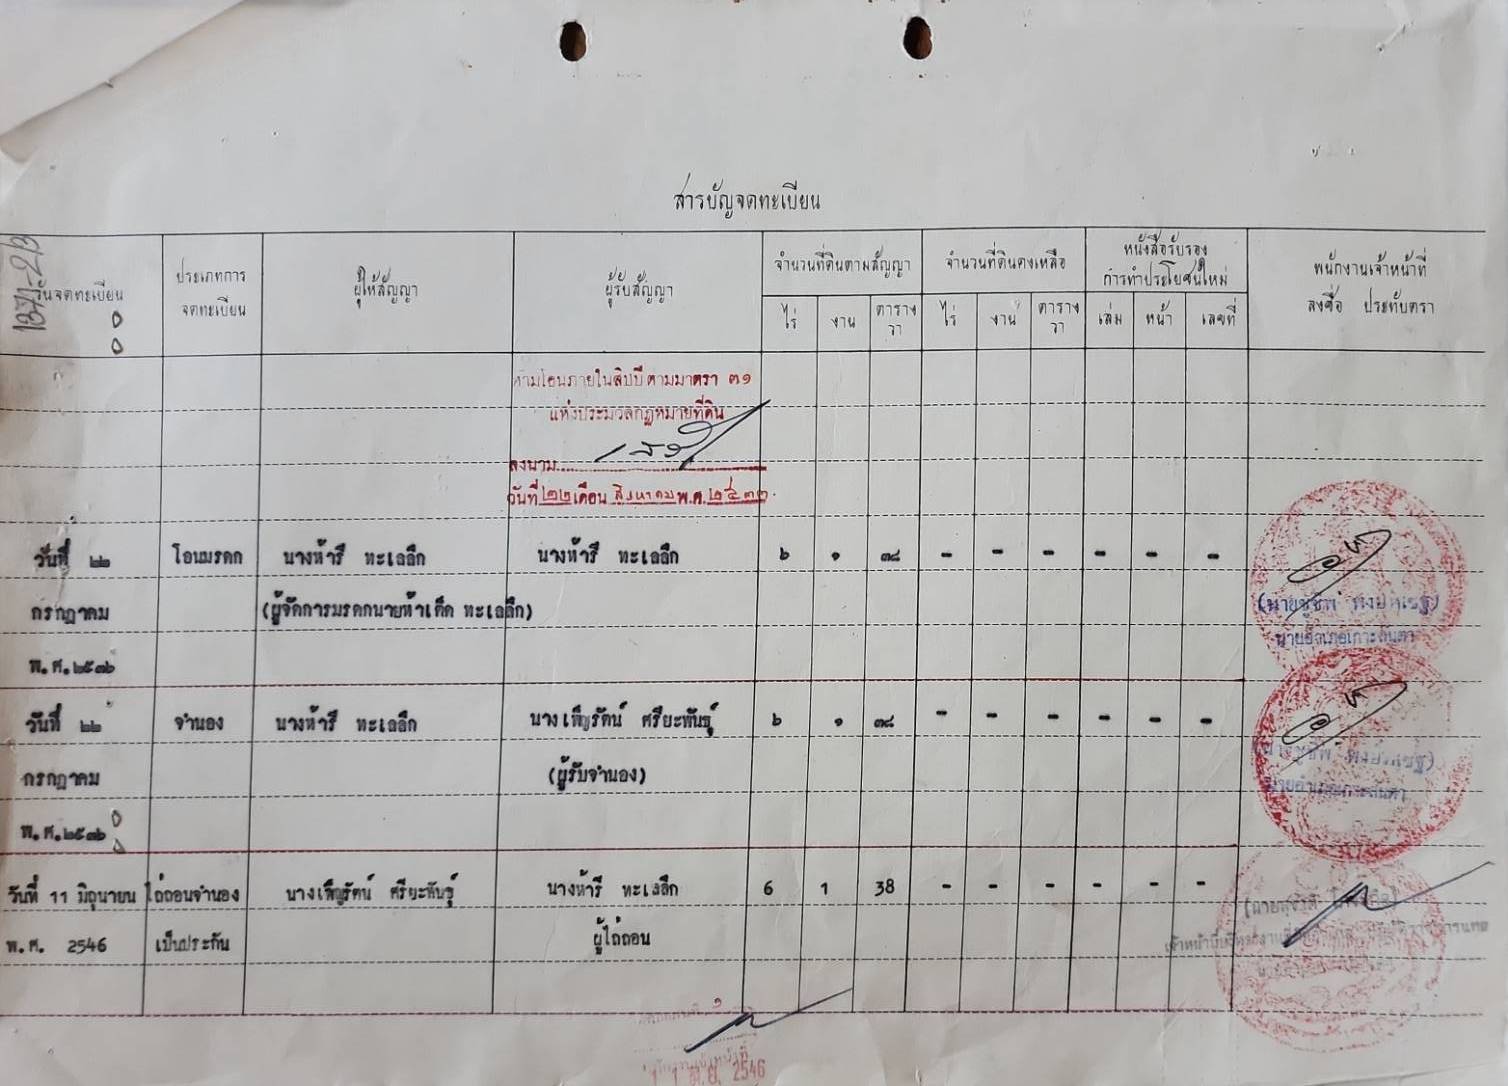 1371-2/3
สารบัญจดทะเบียน
วันจดทะเบียน
ประเภทการ
จดทะเบียน
ผู้ให้สัญญา
ผู้รับสัญญา
จำนวนที่ดินตามสัญญา
ไร่ งาน ตาราง
วา
จำนวนที่ดินคงเหลือ
ไร่ งาน ตาราง
วา
หนังสือรับรอง
การทำประโยชน์ใหม่
เล่ม หน้า เลขที่
พนักงานเจ้าหน้าที่
ลงชื่อ ประทับตรา
ห้ามโอนภายในสิบปี ตามมาตรา ๓๑
แห่งประมวลกฎหมายที่ดิน
ลงนาม
วันที่ ๒๒ เดือน สิงหาคม พ.ศ.
วันที่ ๒๒ โอนมรดก นางห้ารี ทะเลลึก นางห้ารี ทะเลลึก ๖ ๑ ๓๘ - - - - - -
กรกฎาคม (ผู้จัดการมรดกนายห้าเด็ด ทะเลลึก)
พ.ศ.๒๕๓๖
นายอำเภอเกาะลันตา
วันที่ ๒๒ จำนอง นางห้ารี ทะเลลึก นางเพ็ญรัตน์ ศรียะพันธุ์ ๖ ๑ ๓๘ - - - - - -
กรกฎาคม (ผู้รับจำนอง)
พ.ศ.๒๕๓๖
นายอำเภอเกาะลันตา
วันที่ 11 มิถุนายน ไถ่ถอนจำนอง นางเพ็ญรัตน์ ศรียะพันธุ์ นางห้ารี ทะเลลึก 6 1 38 - - - - - -
พ.ศ. 2546 เป็นประกัน ผู้ไถ่ถอน
1 1 มิ.ย. 2546